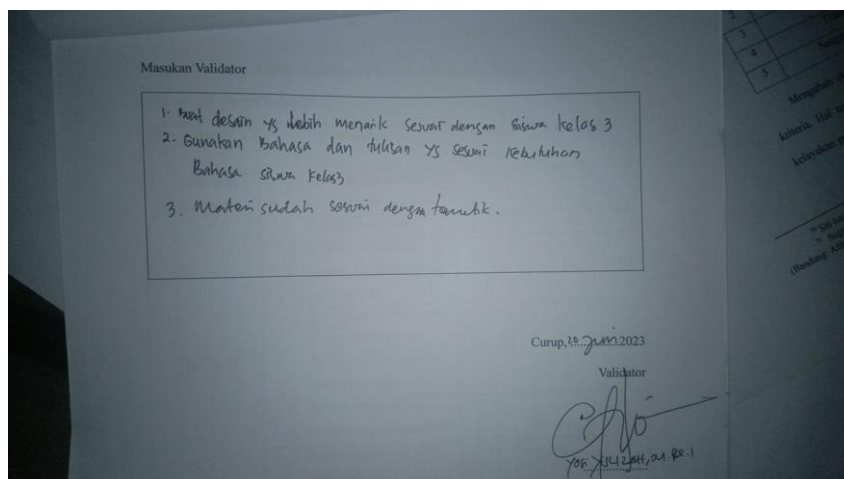 Masukan Validator
1. Buat desain yg lebih menarik sesuai dengan siswa kelas 3
2. Gunakan Bahasa dan tulisan yg sesuai kebutuhan
Bahasa siswa kelas3
3. Materi sudah sesuai dengan tematik.
Curup, 20 Juni 2023
Validator
2
3
4
5
Mengubah
kriteria. Hal
kelayakan
(Bandung: